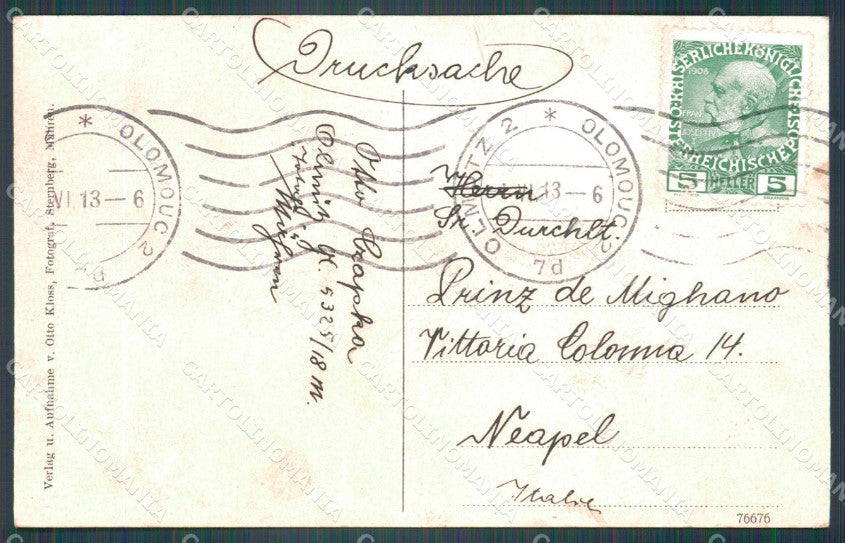 Drucksache
Verlag u. Aufnahme v. Otto Kloss, Fotograf, Sternberg, Mähren.
Otto
Olmütz
5325/18 M.
Mähren
* OLOMOUC 2
VI.13—6
OLMÜTZ 2 * OLOMOUC 2
VI.13—6
7d
1908
KAISERLICHE KÖNIGLICHE
ÖSTERREICHISCHE POST
FRANZ
JOSEF I
5 HELLER 5
Herrn
Sr. Durchlt.
Prinz de Mighano
Vittoria Colonna 14.
Neapel
Italien
76676
CARTOLINOMANIA